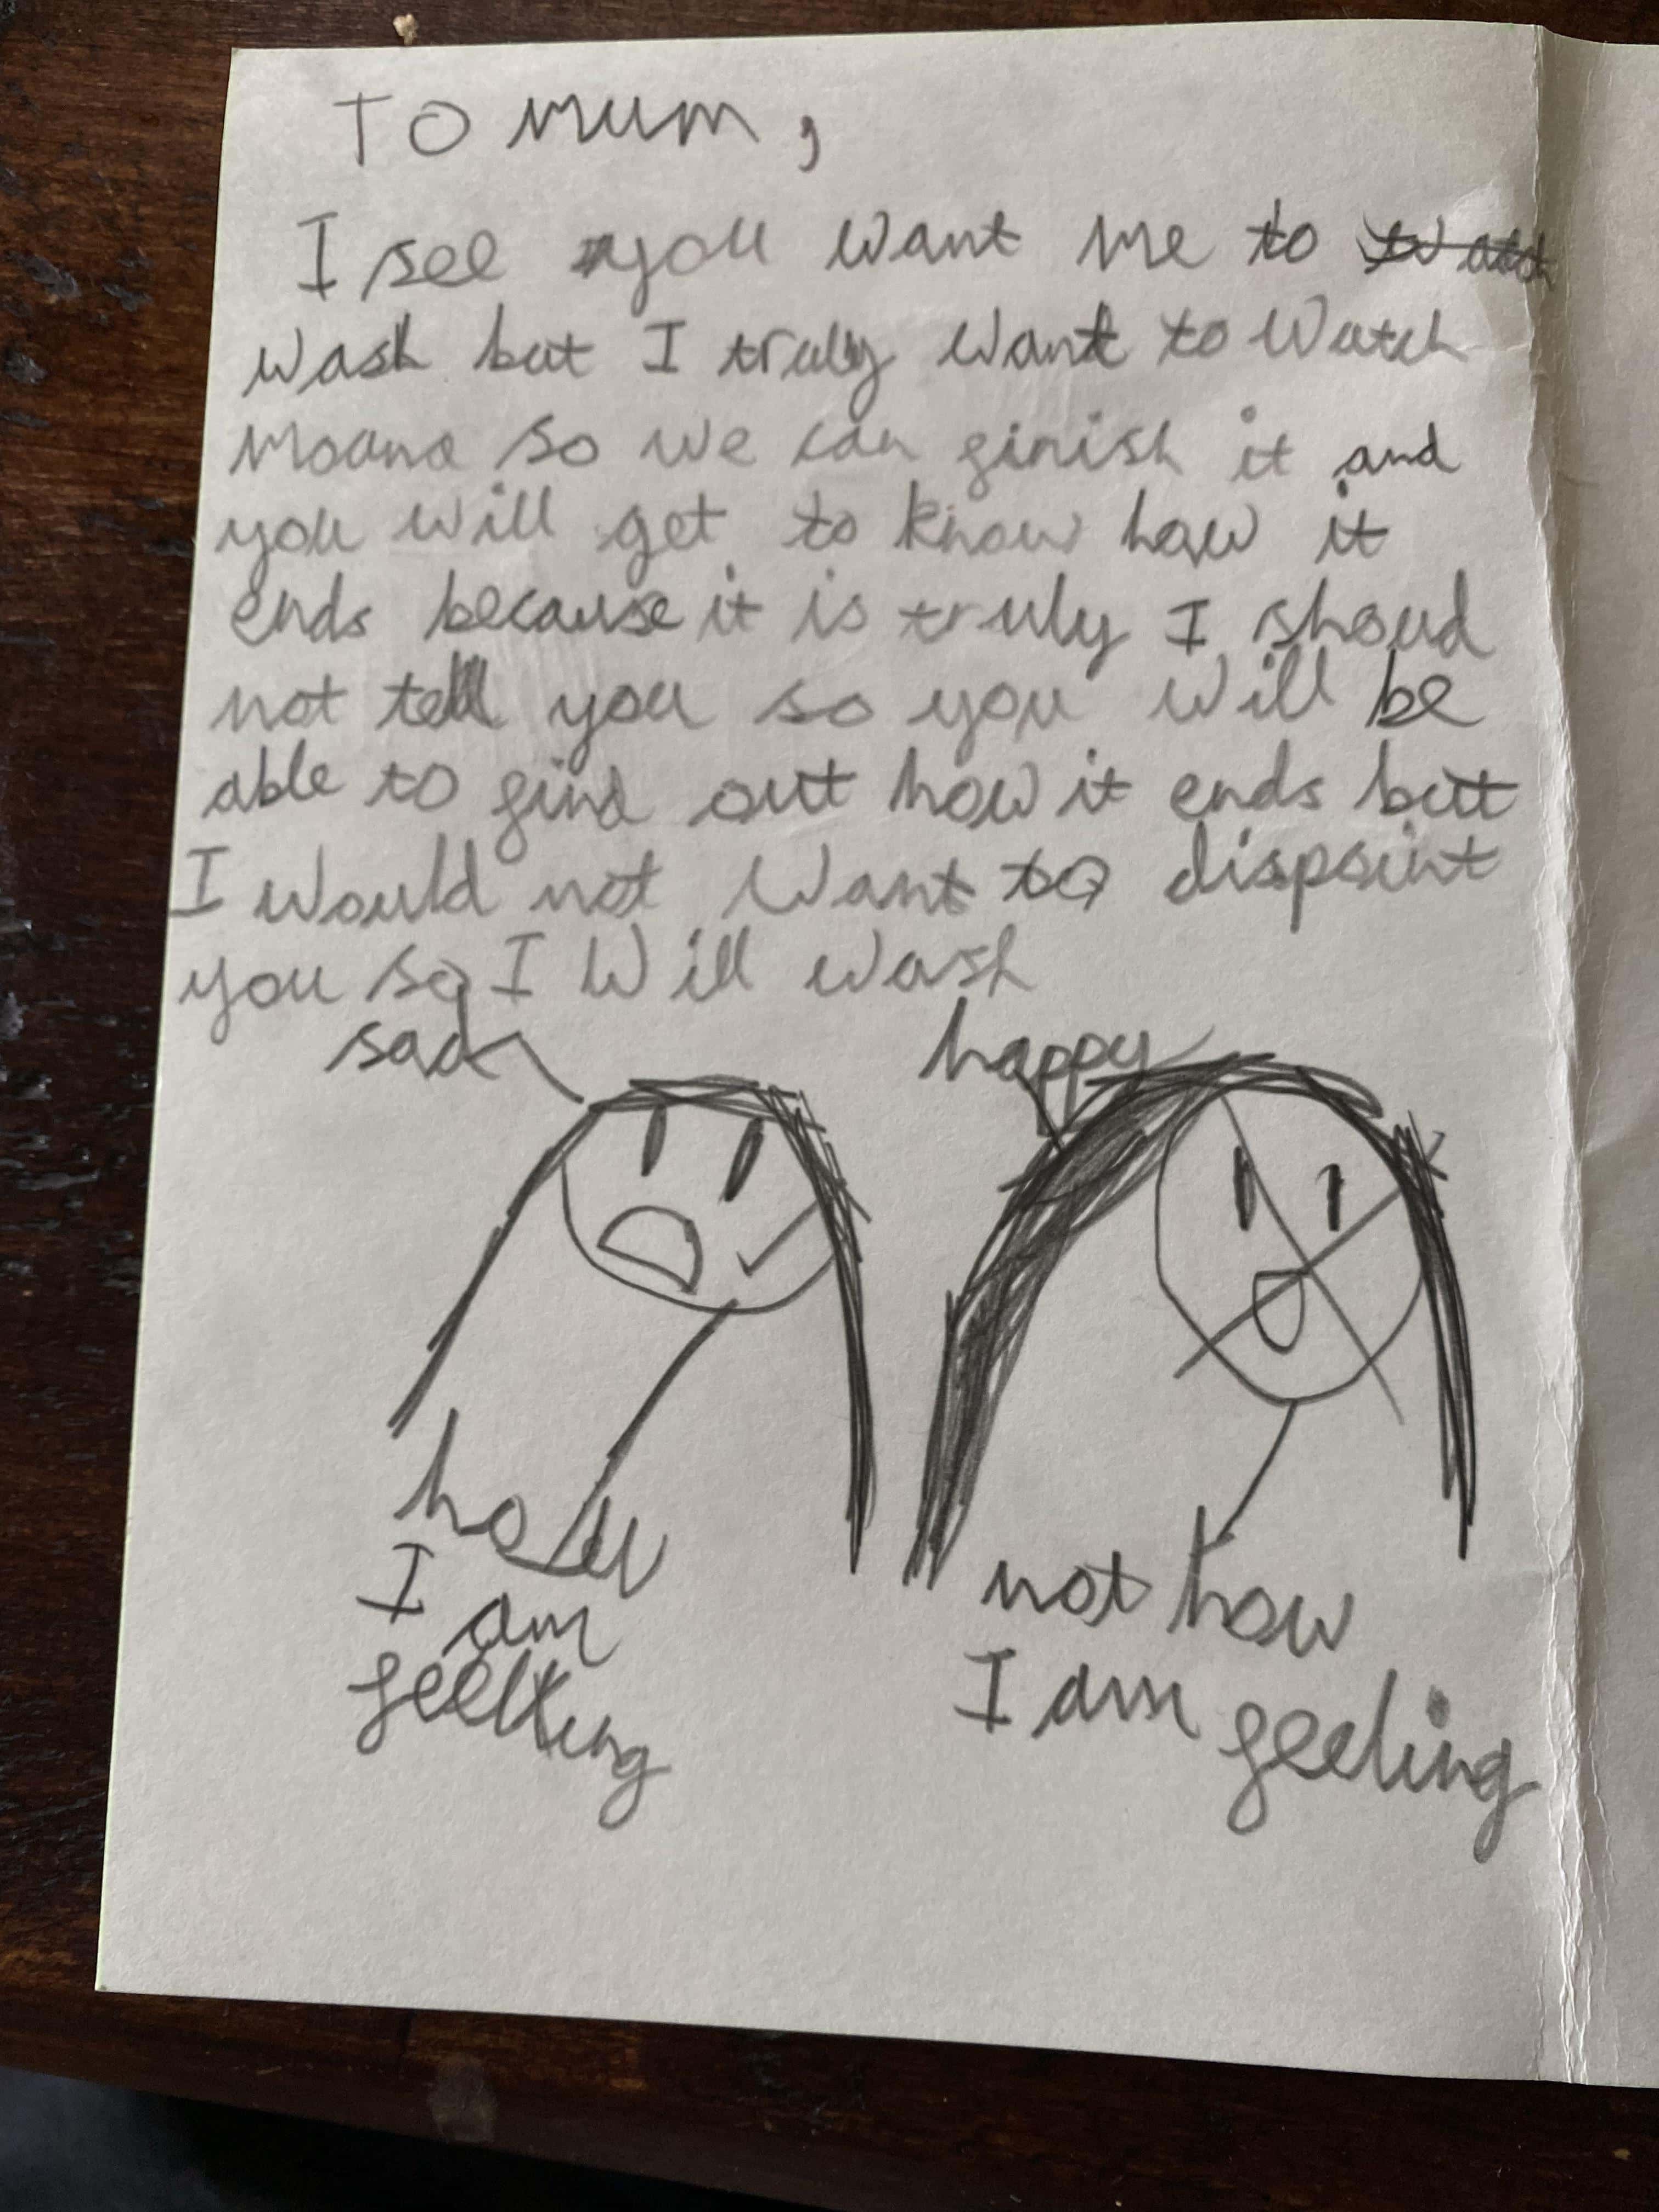 To mum,
I see you want me to watch
wash but I truly want to watch
Moana so we can finish it and
you will get to know how it
ends because it is truly I shoud
not tell you so you will be
able to find out how it ends but
I would not want to dispoint
you so I will wash
sad happy
how
I am
feeling
not how
I am feeling